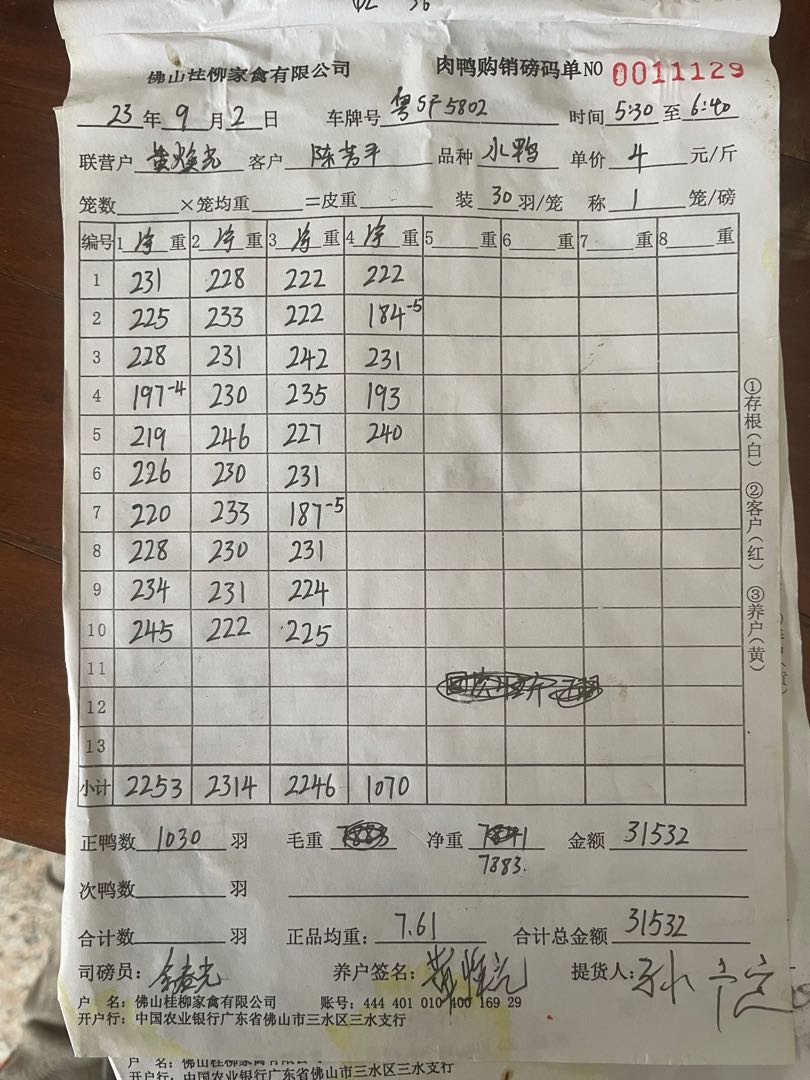 佛山桂柳家禽有限公司 肉鸭购销磅码单NO 0011129
23年9月2日 车牌号 粤SF5802 时间 5:30 至 6:40
联营户 黄焕光 客户 陈芳平 品种 水鸭 单价 4 元/斤
笼数 ×笼均重 =皮重 装 30 羽/笼 称 1 笼/磅
编号 1 净 重 2 净 重 3 净 重 4 净 重 5 重 6 重 7 重 8 重
1 231 228 222 222
2 225 233 222 184-5
3 228 231 242 231
4 197-4 230 235 193
5 219 246 227 240
6 226 230 231
7 220 233 187-5
8 228 230 231
9 234 231 224
10 245 222 225
11
12
13
小计 2253 2314 2246 1070
正鸭数 1030 羽 毛重 净重 金额 31532
7883.
次鸭数 羽
合计数 羽 正品均重: 7.61 合计总金额 31532
司磅员: 养户签名: 提货人:
户 名: 佛山桂柳家禽有限公司 账号: 444 401 010 400 169 29
开户行: 中国农业银行广东省佛山市三水区三水支行
①存根(白) ②客户(红) ③养户(黄)
户 名: 佛山桂柳家禽有限公司
开户行: 中国农业银行广东省佛山市三水区三水支行